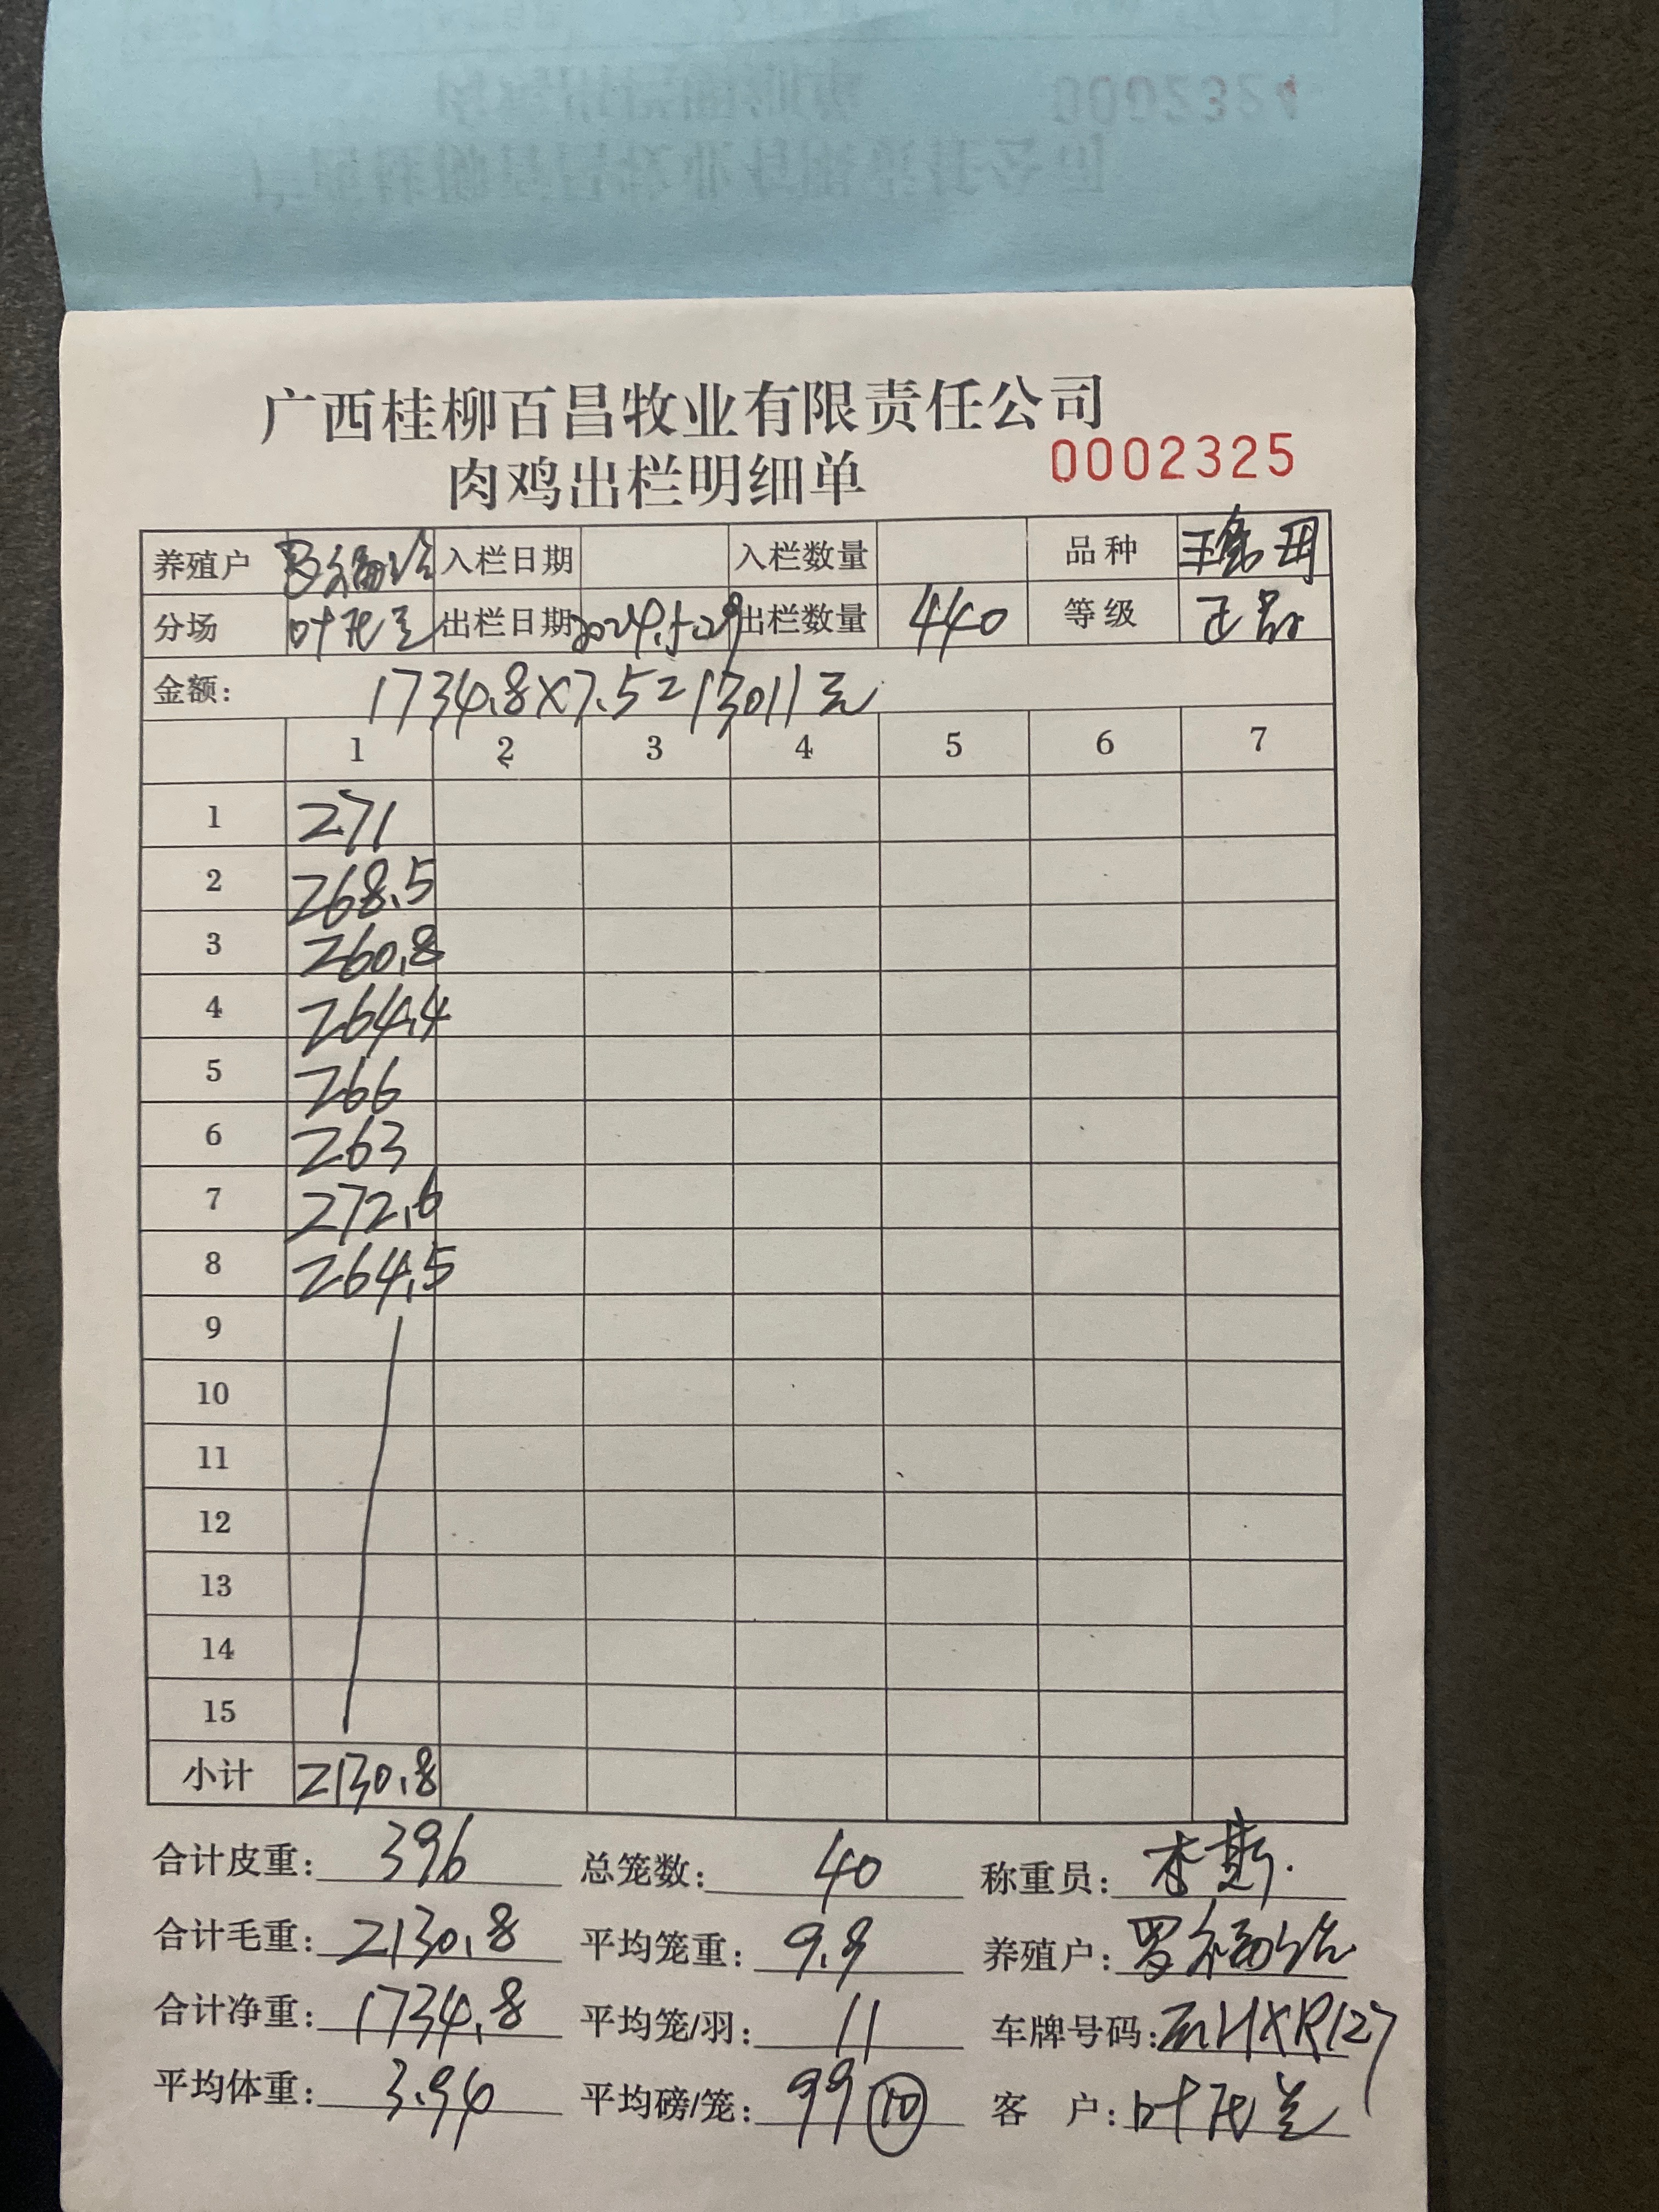 广西桂柳百昌牧业有限责任公司
肉鸡出栏明细单 0002325
养殖户 罗福 入栏日期 入栏数量 品种
分场 叶 出栏日期 2024.5.29 出栏数量 440 等级 正品
金额: 1734.8×7.5=13011元
1 2 3 4 5 6 7
1 271
2 268.5
3 260.8
4 264.4
5 266
6 263
7 272.6
8 264.5
9
10
11
12
13
14
15
小计 2130.8
合计皮重: 396 总笼数: 40 称重员: 李
合计毛重: 2130.8 平均笼重: 9.9 养殖户: 罗福
合计净重: 1734.8 平均笼/羽: 11 车牌号码: HXR127
平均体重: 3.94 平均磅/笼: 99 10 客 户: 叶
0002324